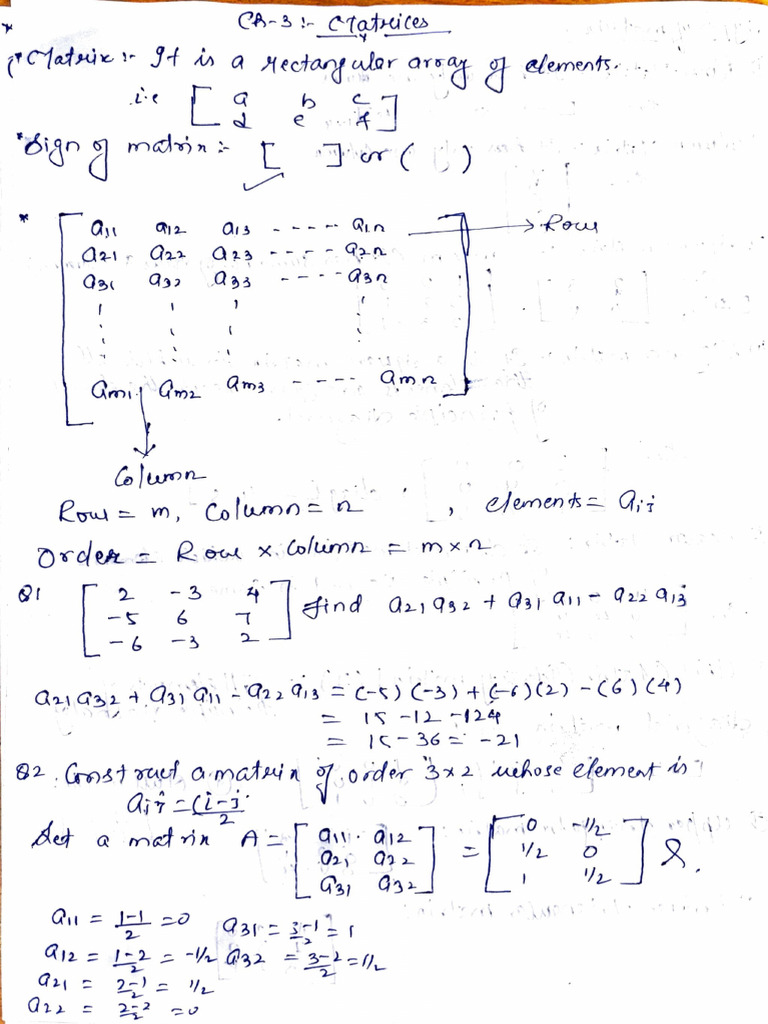 Ch-3 :- Matrices
* Matrix :- It is a rectangular array of elements.
i.e [ a b c
d e f ]
* Sign of matrix :- [ ] or ( )
* [ a11 a12 a13 ----- a1n → Row
a21 a22 a23 ----- a2n
a31 a32 a33 ----- a3n
am1 am2 am3 ---- amn ]
↓
Column
Row = m, Column = n , elements = aij
Order = Row x Column = m x n
Q1 [ 2 -3 4
-5 6 7
-6 -3 2 ] find a21 a32 + a31 a11 - a22 a13
a21 a32 + a31 a11 - a22 a13 = (-5) (-3) + (-6) (2) - (6) (4)
= 15 - 12 - 124
= 15 - 36 = -21
Q2. Construct a matrix of order 3x2 whose element is
aij = (i-j)/2
Let a matrix A = [ a11 a12
a21 a22
a31 a32 ] = [ 0 -1/2
1/2 0
1 1/2 ]
a11 = 1-1/2 = 0 a31 = 3-1/2 = 1
a12 = 1-2/2 = -1/2 a32 = 3-2/2 = 1/2
a21 = 2-1/2 = 1/2
a22 = 2-2/2 = 0